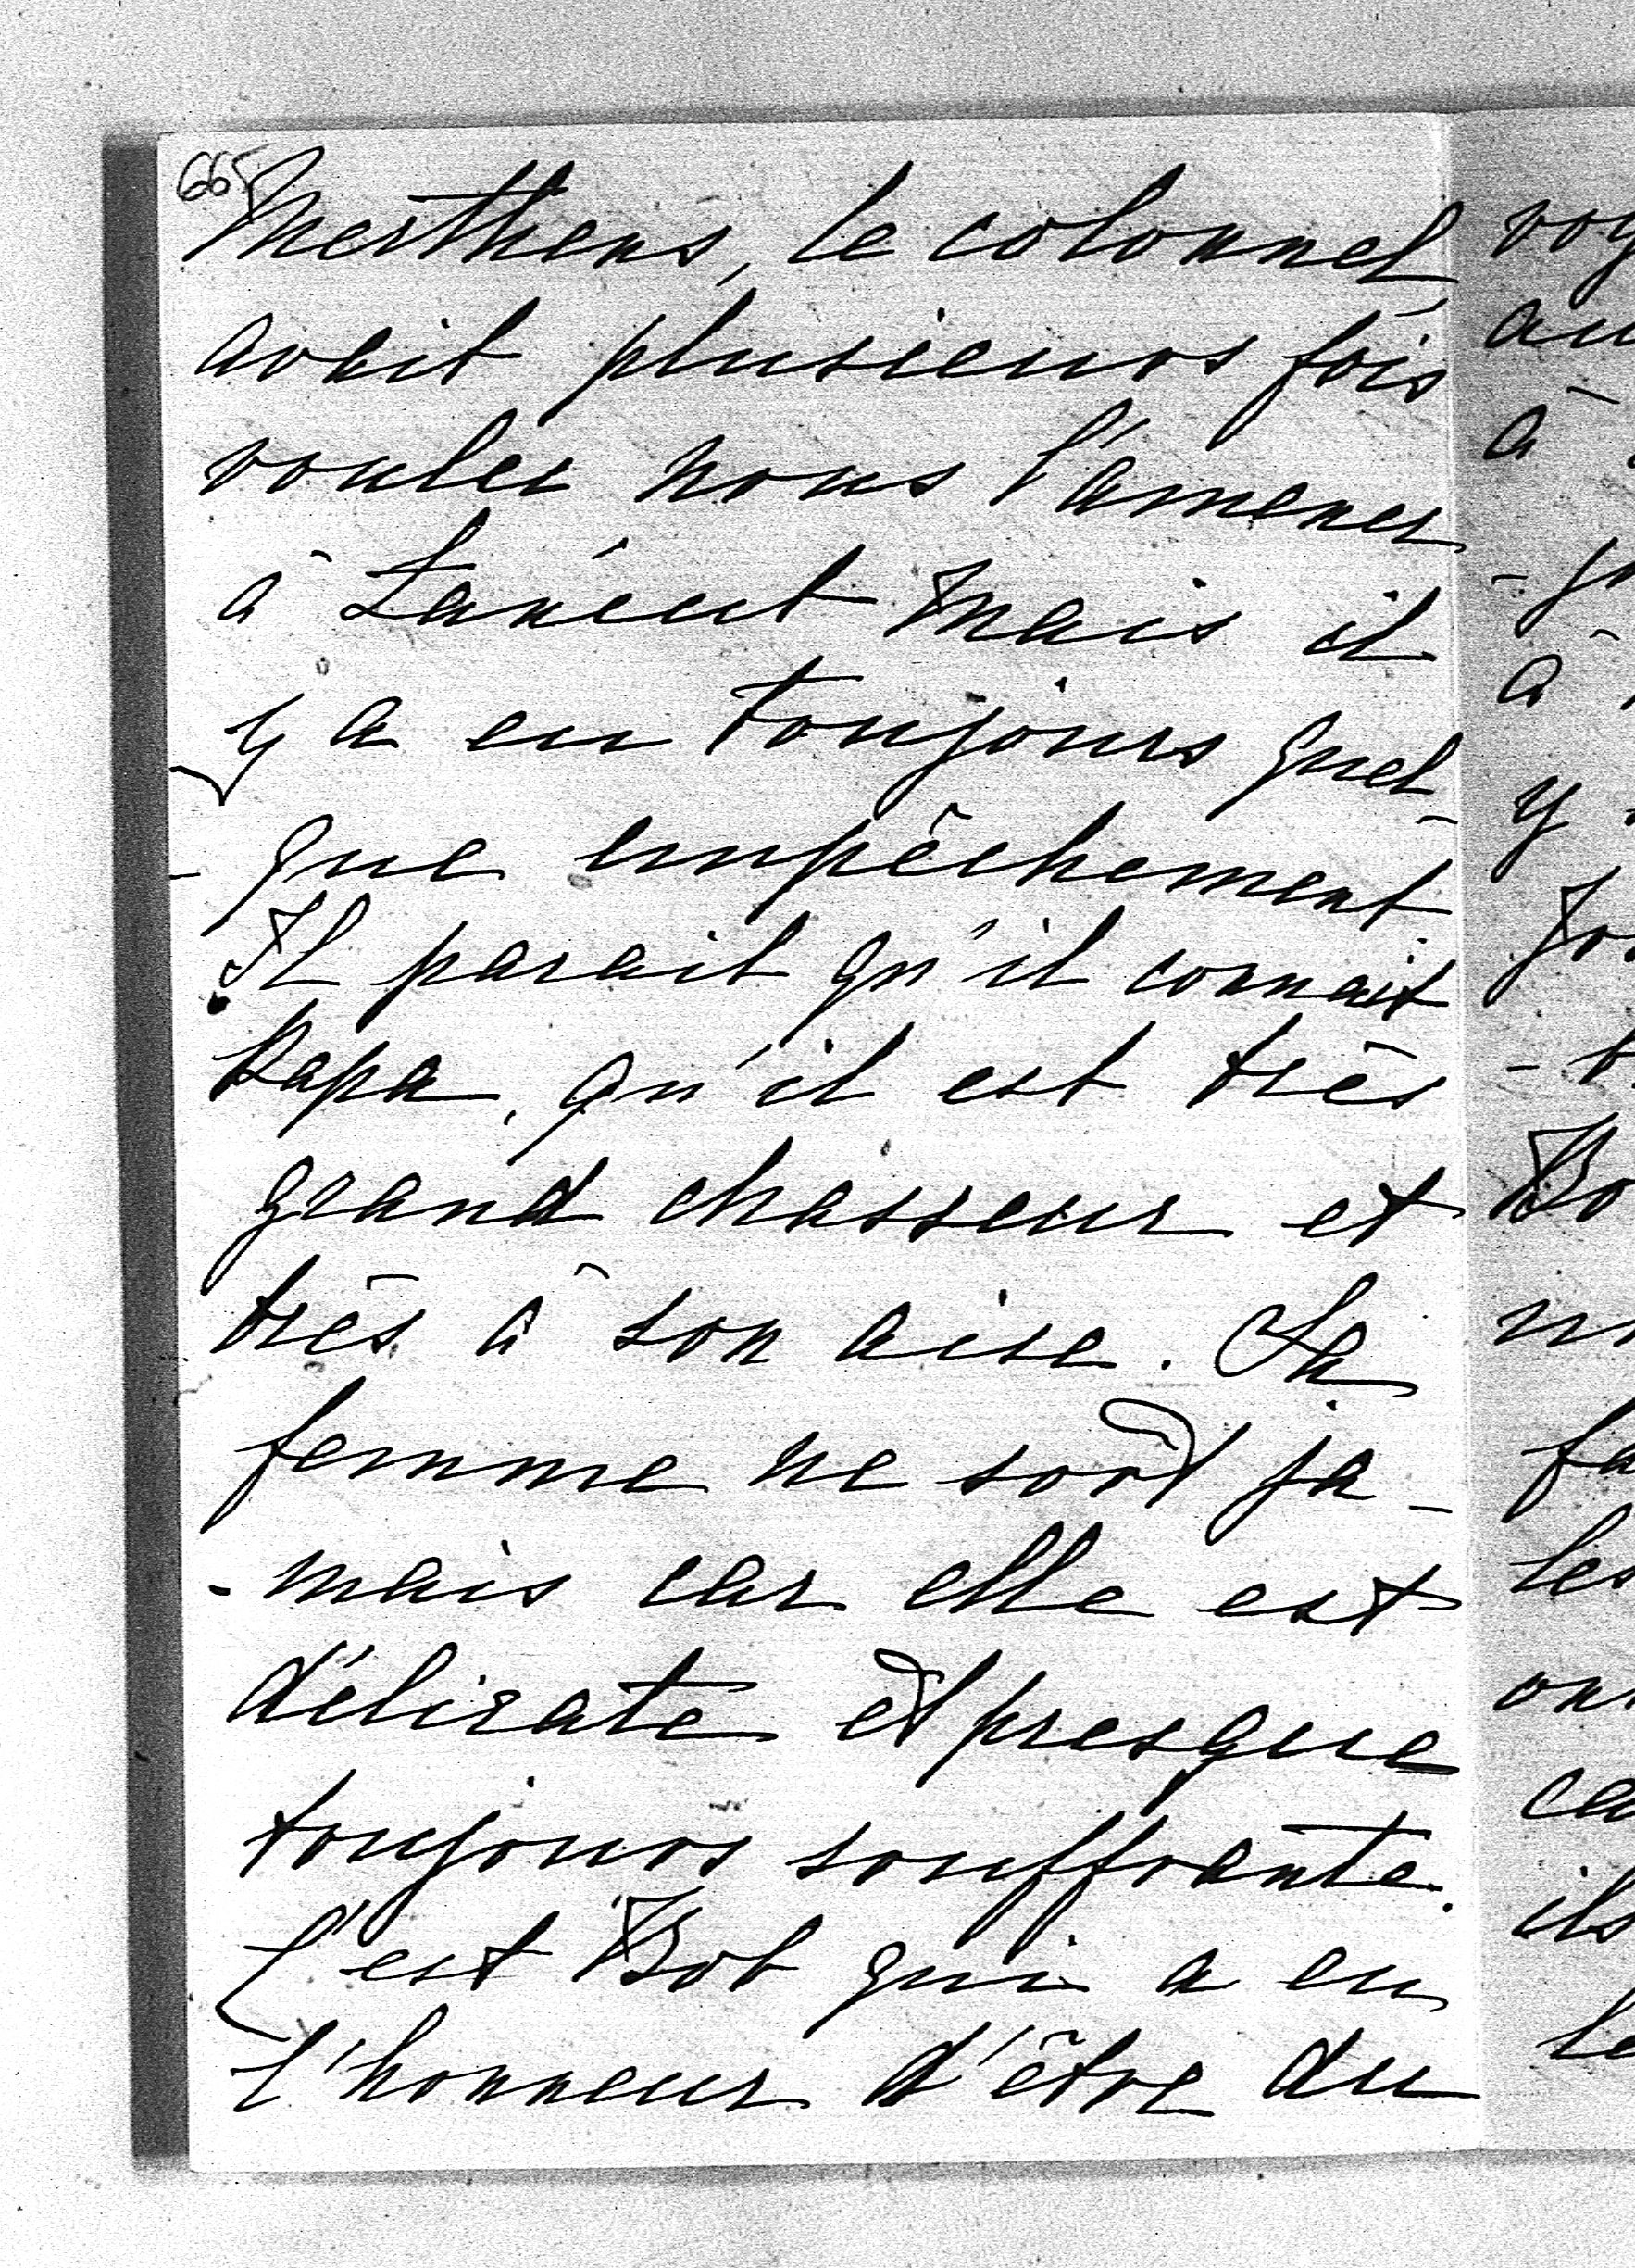 665
Merthens, le colonnel
avait plusieurs fois
voulu nous l'amener
à Lancut mais il
y a eu toujours quel-
-que empêchement
Il parait qu'il connait
Papa, qu'il est très
grand chasseur et
très à son aise. Sa
femme ne sort ja-
-mais car elle est
délicate et presque
toujours souffrante.
C'est Bob qui a eu
l'honneur d'être du